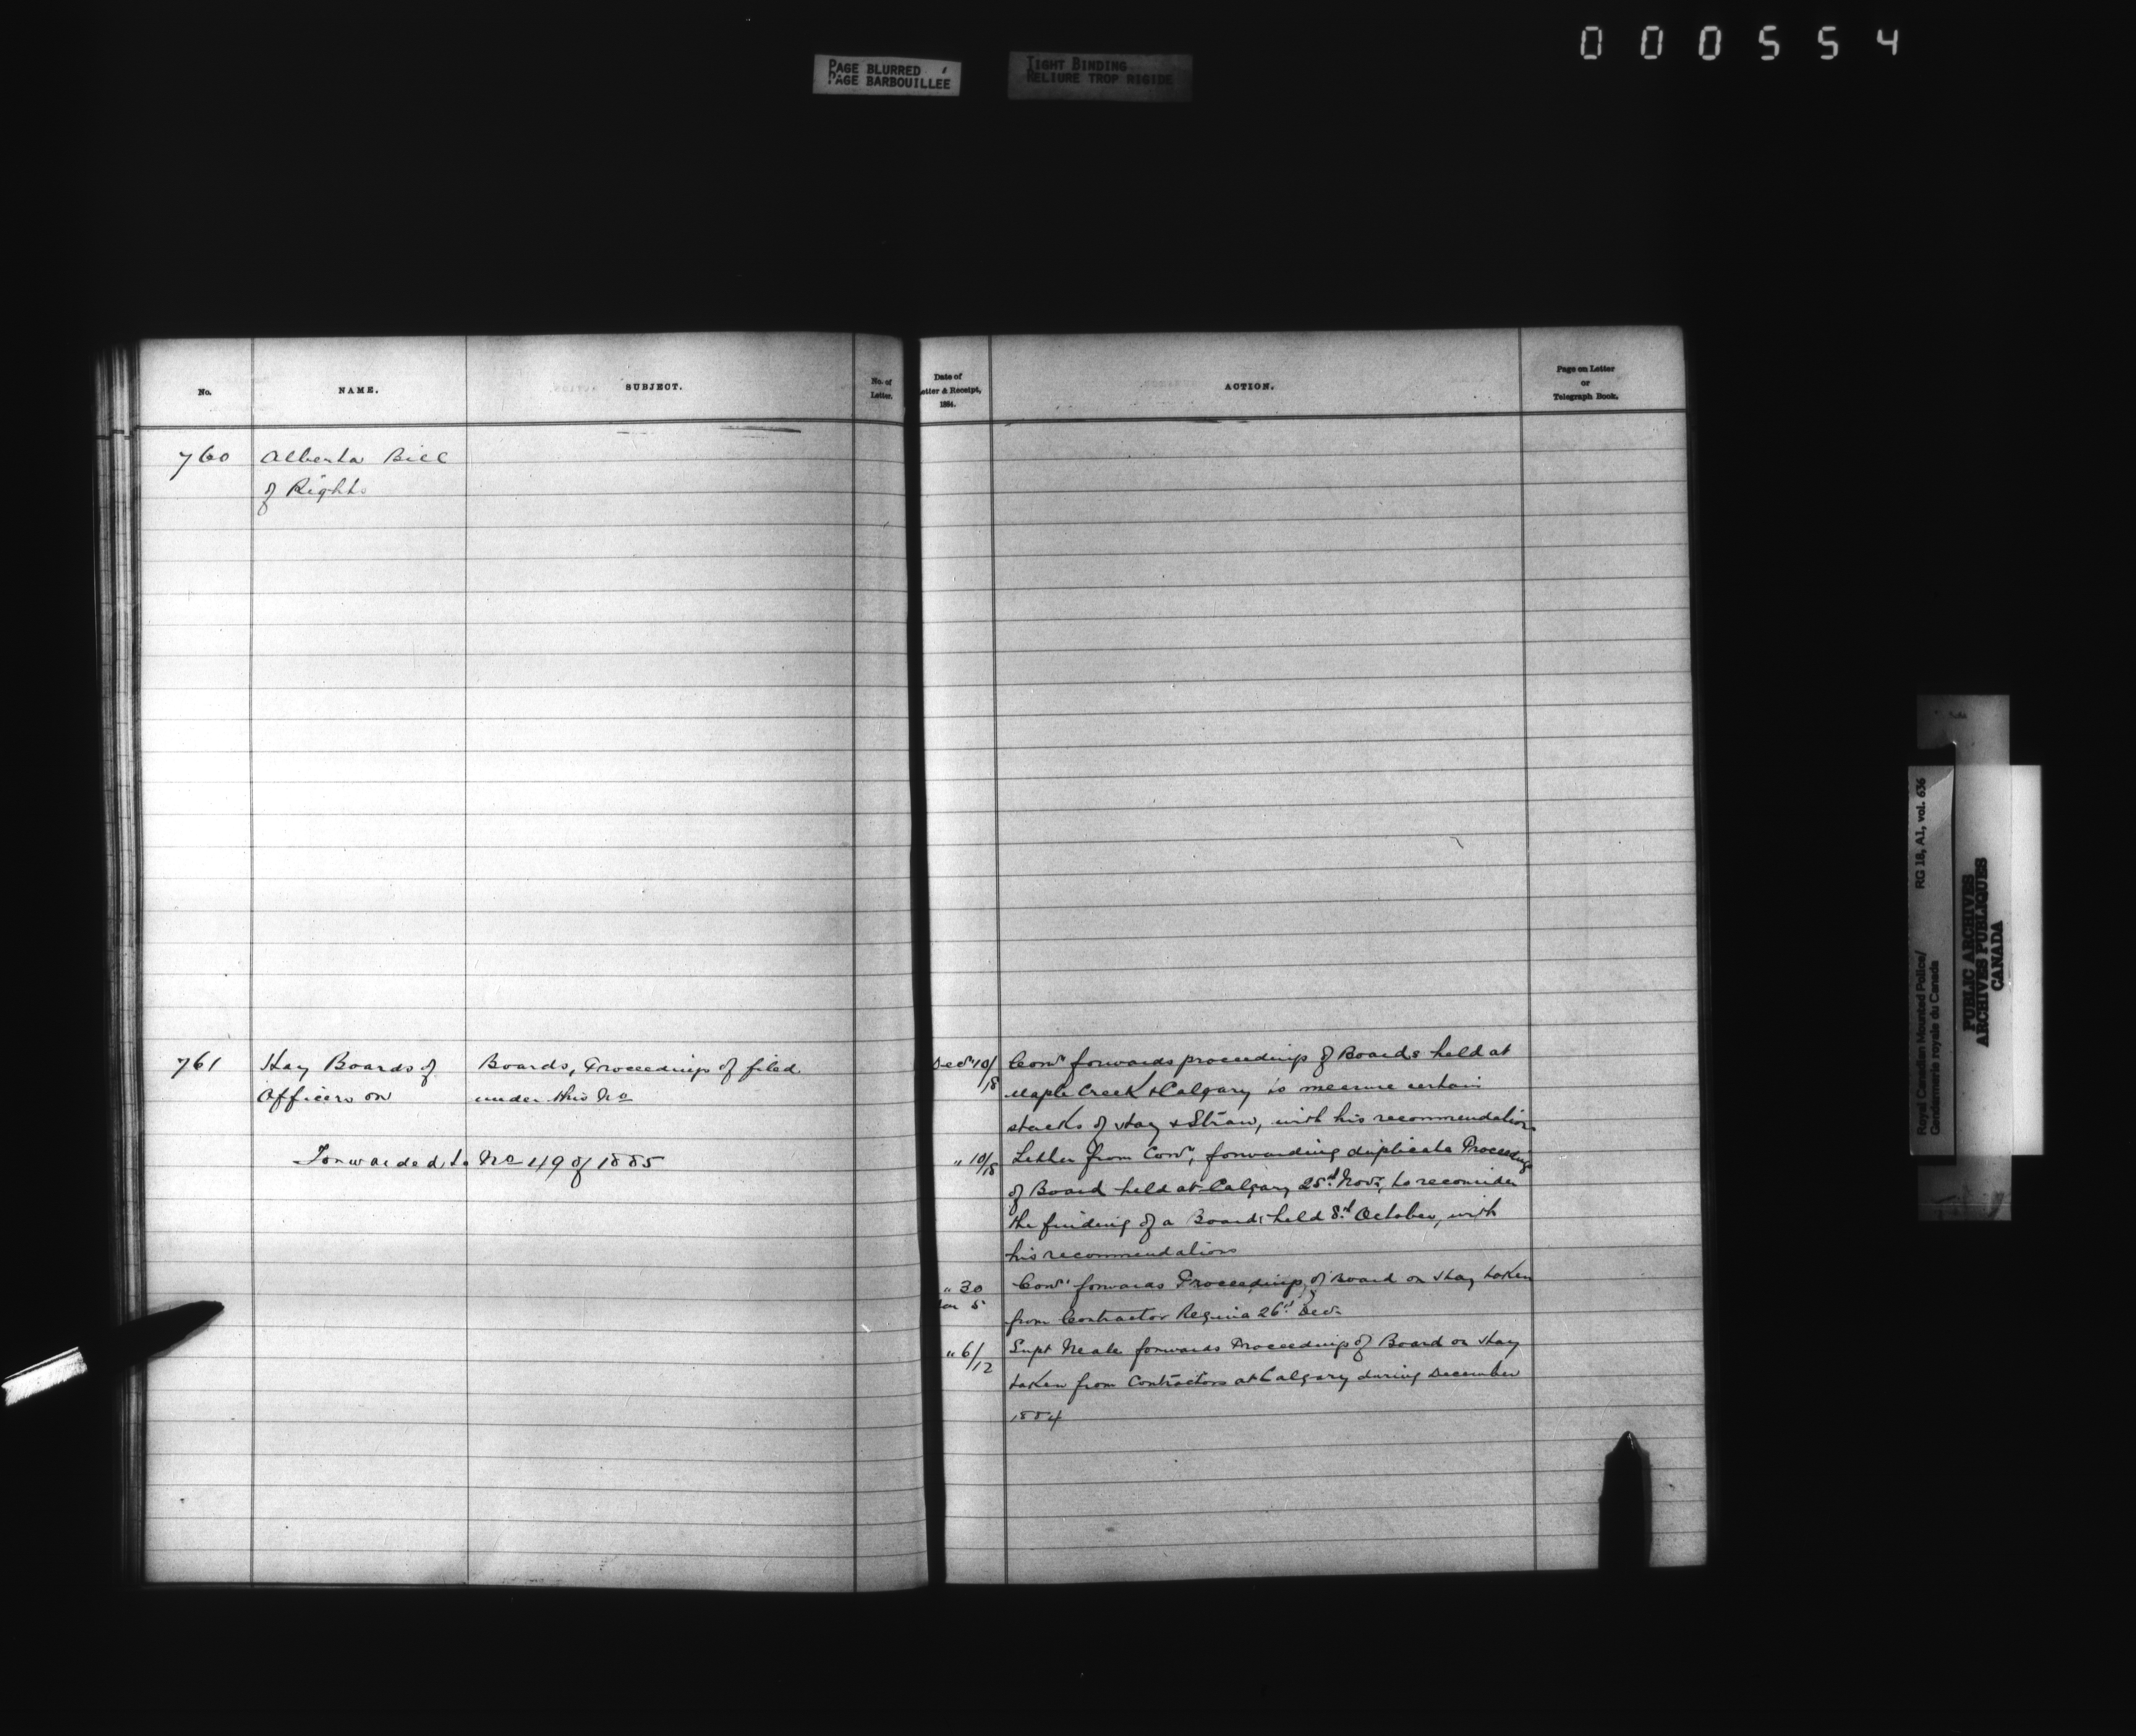 000554
PAGE BLURRED
PAGE BARBOUILLEE
TIGHT BINDING
RELIURE TROP RIGIDE
No. NAME. SUBJECT. No. of Letter.
Date of Letter & Receipt, 1884. ACTION. Page on Letter or Telegraph Book.
760 Alberta Bill
of Rights
761 Hay Boards of Boards, Proceedings of filed
Officers on under this No
Forwarded to No 49 of 1885
Decr 10/18 Comr forwards proceedings of Boards held at
Maple Creek & Calgary to measure certain
stacks of Hay & Straw, with his recommendations
" 10/18 Letter from Comr, forwarding duplicate Proceedings
of Board held at Calgary 25th Novr, to reconsider
the finding of a Board held 8th October, with
his recommendations
" 30 Comr forwards Proceedings of Board on Hay taken
Jan 5 from Contractor Regina 26th Decr
" 6/12 Supt Neale forwards Proceedings of Board on Hay
taken from Contractors at Calgary during December
1884
Royal Canadian Mounted Police/ RG 18, A1, vol. 636
Gendarmerie royale du Canada
PUBLIC ARCHIVES
ARCHIVES PUBLIQUES
CANADA